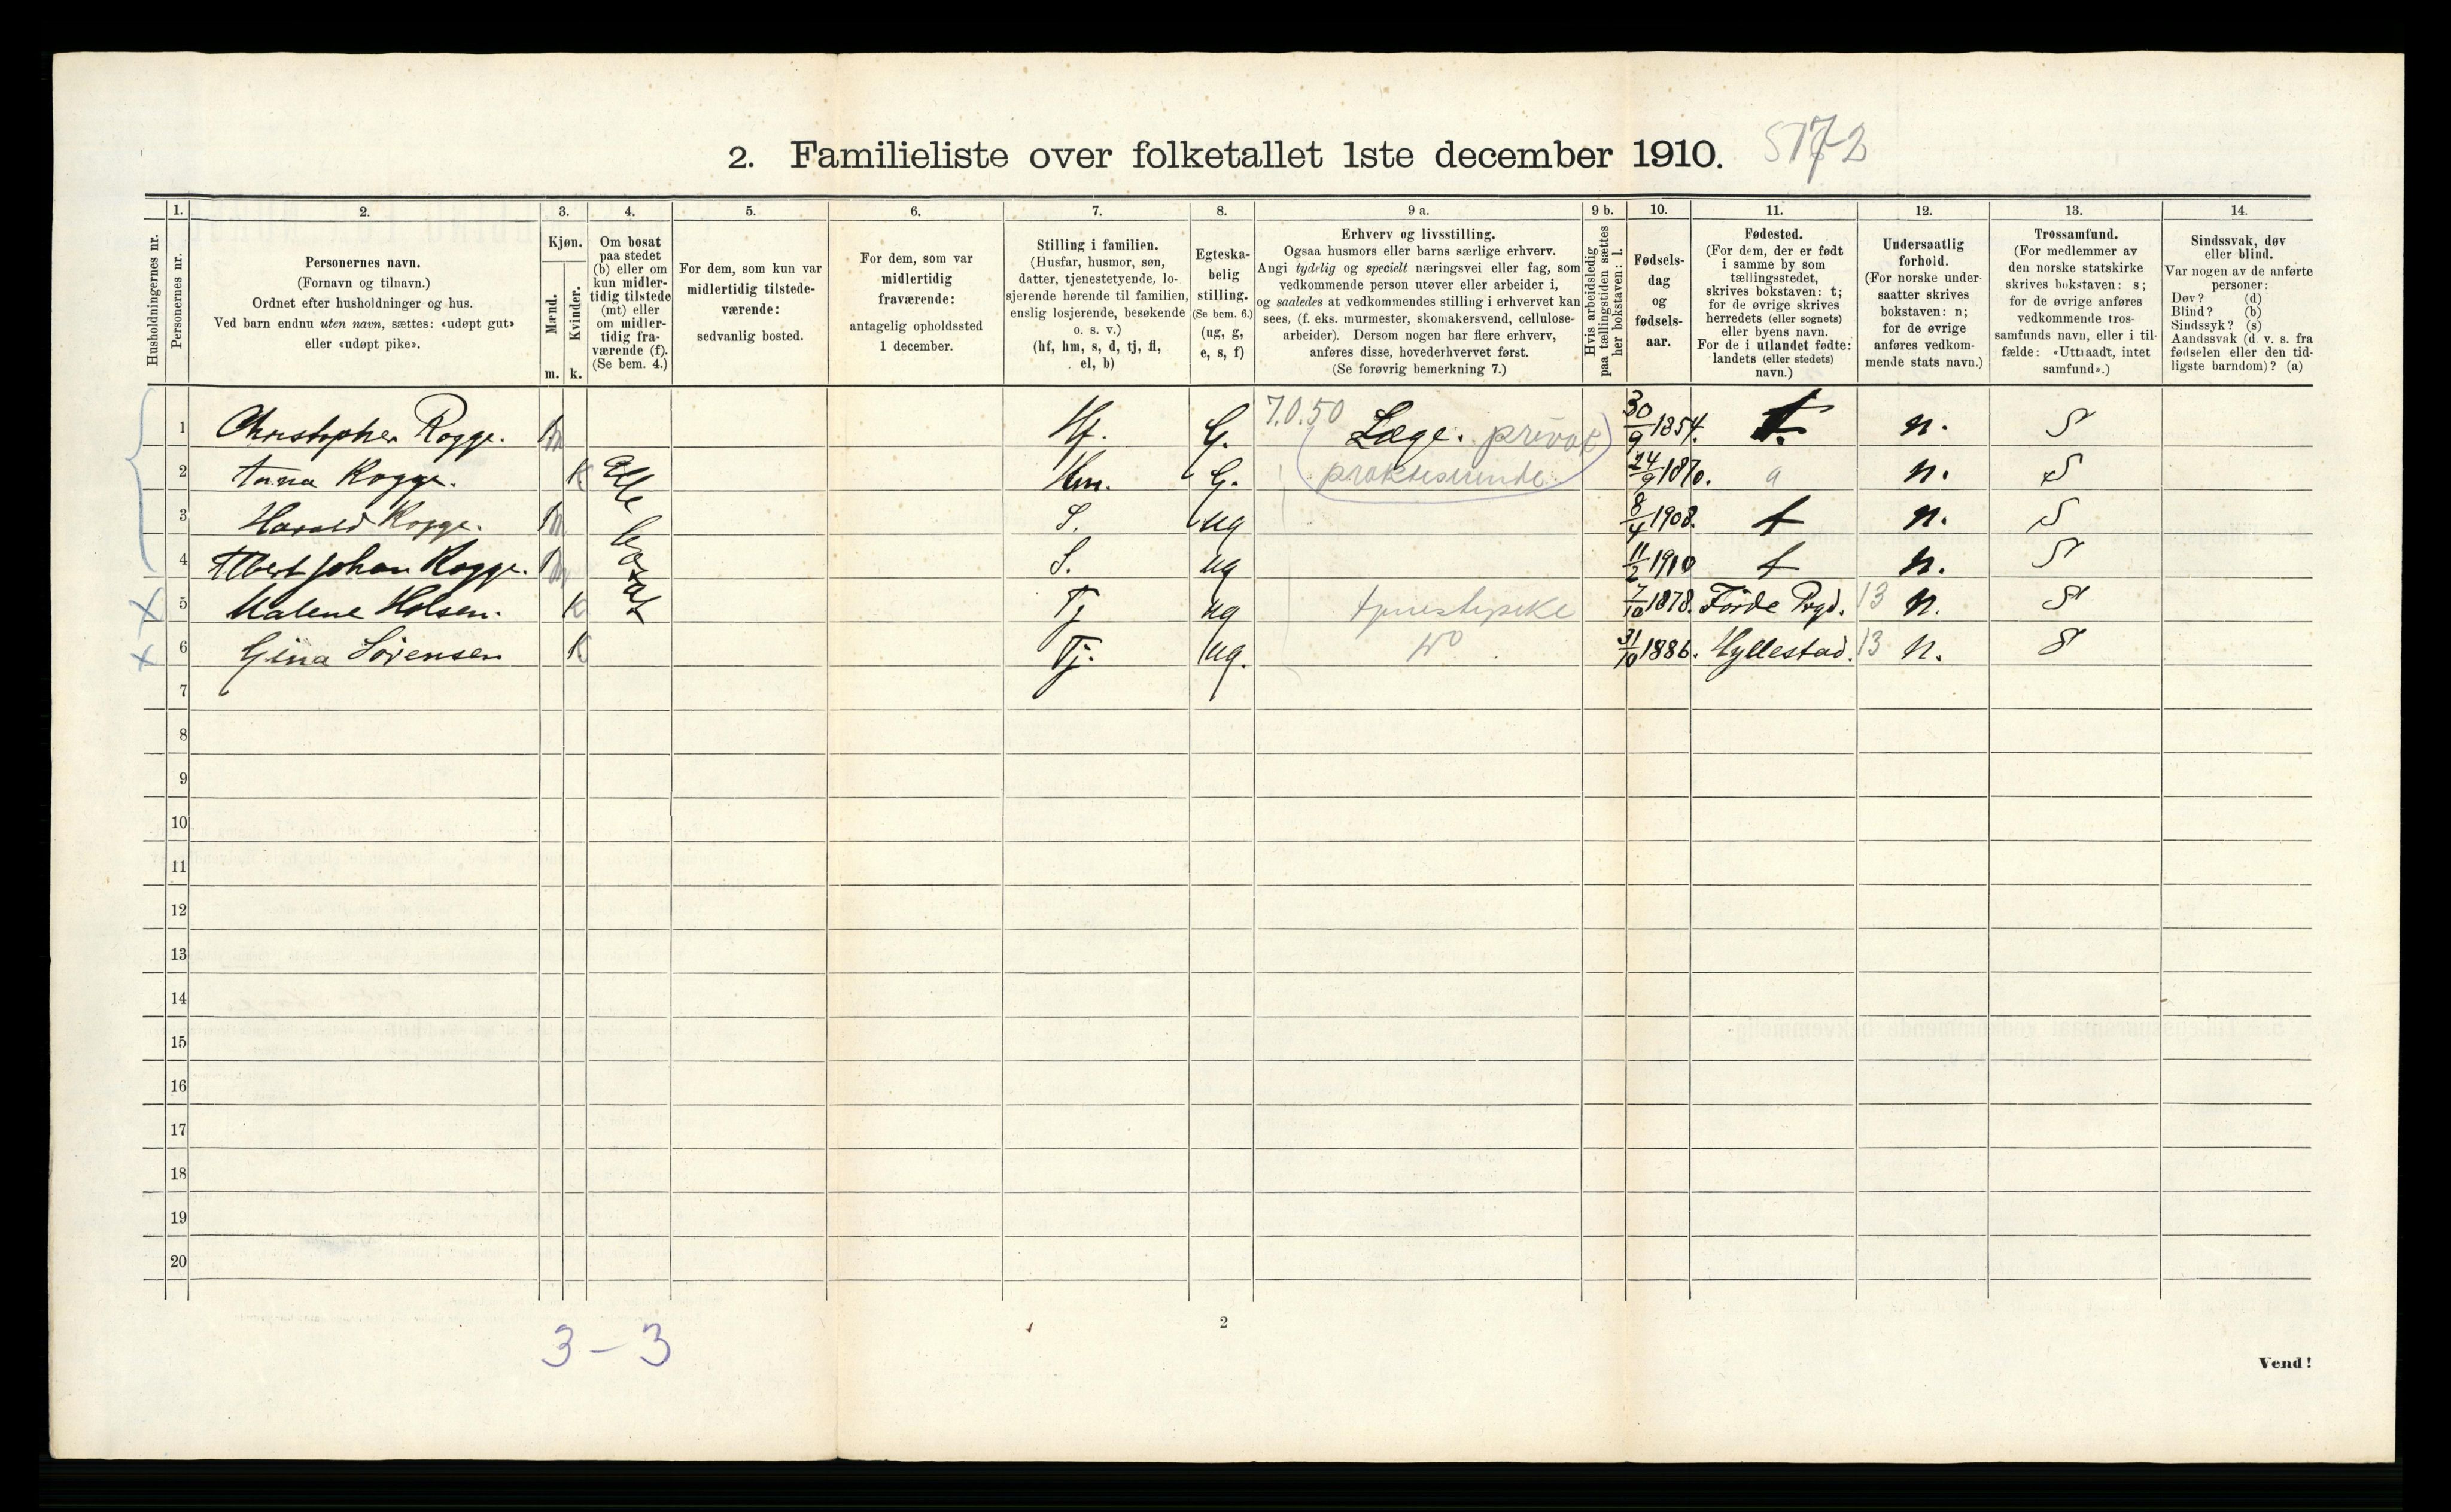 2. Familieliste over folketallet 1ste december 1910. 5172
1. 2. 3. 4. 5. 6. 7. 8. 9 a. 9 b. 10. 11. 12. 13. 14.
Husholdningernes nr.
Personernes nr.
Personernes navn.
(Fornavn og tilnavn.)
Ordnet efter husholdninger og hus.
Ved barn endnu uten navn, sættes: «udøpt gut»
eller «udøpt pike».
Kjøn.
Mænd.
Kvinder.
m. k.
Om bosat
paa stedet
(b) eller om
kun midler-
tidig tilstede
(mt) eller
om midler-
tidig fra-
værende (f).
(Se bem. 4.)
For dem, som kun var
midlertidig tilstede-
værende:
sedvanlig bosted.
For dem, som var
midlertidig
fraværende:
antagelig opholdssted
1 december.
Stilling i familien.
(Husfar, husmor, søn,
datter, tjenestetyende, lo-
sjerende hørende til familien,
enslig losjerende, besøkende
o. s. v.)
(hf, hm, s, d, tj, fl,
el, b)
Egteska-
belig
stilling.
(Se bem. 6.)
(ug, g,
e, s, f)
Erhverv og livsstilling.
Ogsaa husmors eller barns særlige erhverv.
Angi tydelig og specielt næringsvei eller fag, som
vedkommende person utøver eller arbeider i,
og saaledes at vedkommendes stilling i erhvervet kan
sees, (f. eks. murmester, skomakersvend, cellulose-
arbeider). Dersom nogen har flere erhverv,
anføres disse, hovederhvervet først.
(Se forøvrig bemerkning 7.)
Hvis arbeidsledig
paa tællingstiden sættes
her bokstaven: l.
Fødsels-
dag
og
fødsels-
aar.
Fødested.
(For dem, der er født
i samme by som
tællingsstedet,
skrives bokstaven: t;
for de øvrige skrives
herredets (eller sognets)
eller byens navn.
For de i utlandet fødte:
landets (eller stedets)
navn.)
Undersaatlig
forhold.
(For norske under-
saatter skrives
bokstaven: n;
for de øvrige
anføres vedkom-
mende stats navn.)
Trossamfund.
(For medlemmer av
den norske statskirke
skrives bokstaven: s;
for de øvrige anføres
vedkommende tros-
samfunds navn, eller i til-
fælde: «Uttraadt, intet
samfund».)
Sindssvak, døv
eller blind.
Var nogen av de anførte
personer:
Døv? (d)
Blind? (b)
Sindssyk? (s)
Aandssvak (d. v. s. fra
fødselen eller den tid-
ligste barndom)? (a)
1 Christopher Rogge. m Hf. G. 7.0.50 Læge. privat 30/9 1854. t. n. S
2 Anna Rogge. k Alle bosat Hm. G. praktiserende 24/9 1870. a n. S
3 Harald Rogge. m S. ug 8/4 1908. t n. S
4 Albert Johan Rogge. m S. ug 11/2 1910 t n. S
5 Malene Holsen. k Tj ug tjenestepike 7/10 1878. Förde Prgd. 13 n. S
6 Gina Sörensen k Tj. ug. do 31/10 1886. Hyllestad. 13 n. S
7
8
9
10
11
12
13
14
15
16
17
18
19
20
3 – 3
2
Vend!